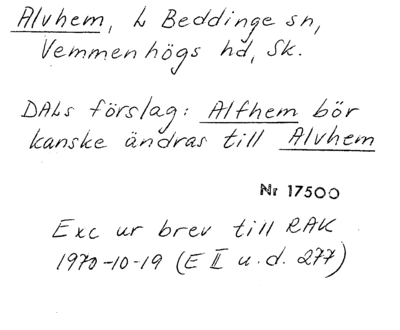 Alvhem, L Beddinge sn,
Vemmenhögs hd, Sk.
DALs förslag: Alfhem bör
kanske ändras till Alvhem
Nr 17500
Exc ur brev till RAK
1970-10-19 (E II u.d. 277)